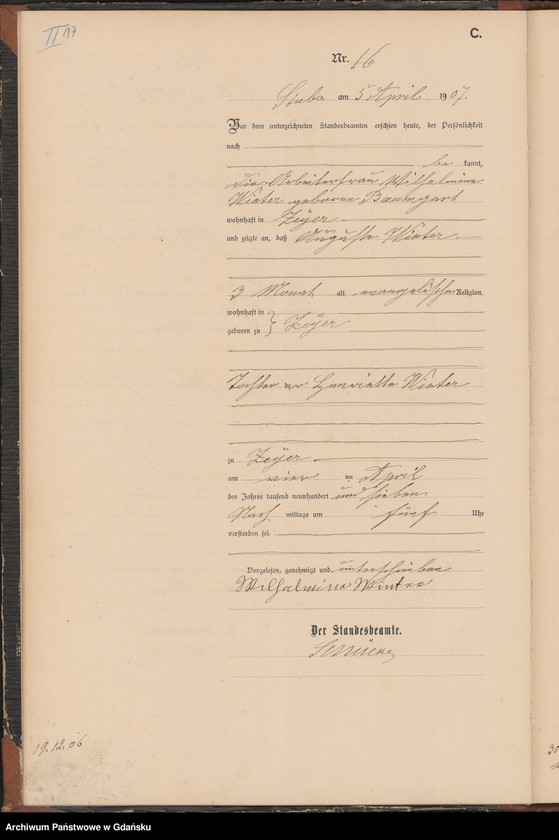 II 17
C.
Nr. 16
Stuba am 5 April 1907.
Vor dem unterzeichneten Standesbeamten erschien heute, der Persönlichkeit
nach
be kannt,
die Arbeiterfrau Wilhelmine
Winter geborene Baumgart
wohnhaft in Zeyer
und zeigte an, daß Auguste Winter
3 Monat alt, evangelischer Religion,
wohnhaft in
geboren zu } Zeyer
Tochter der Henriette Winter
zu Zeyer
am vier ten April
des Jahres tausend neunhundert und sieben
Nach mittags um fünf Uhr
verstorben sei.
Vorgelesen, genehmigt und unterschrieben
Wilhelmine Winter
Der Standesbeamte.
19.12.06
30
Archiwum Państwowe w Gdańsku